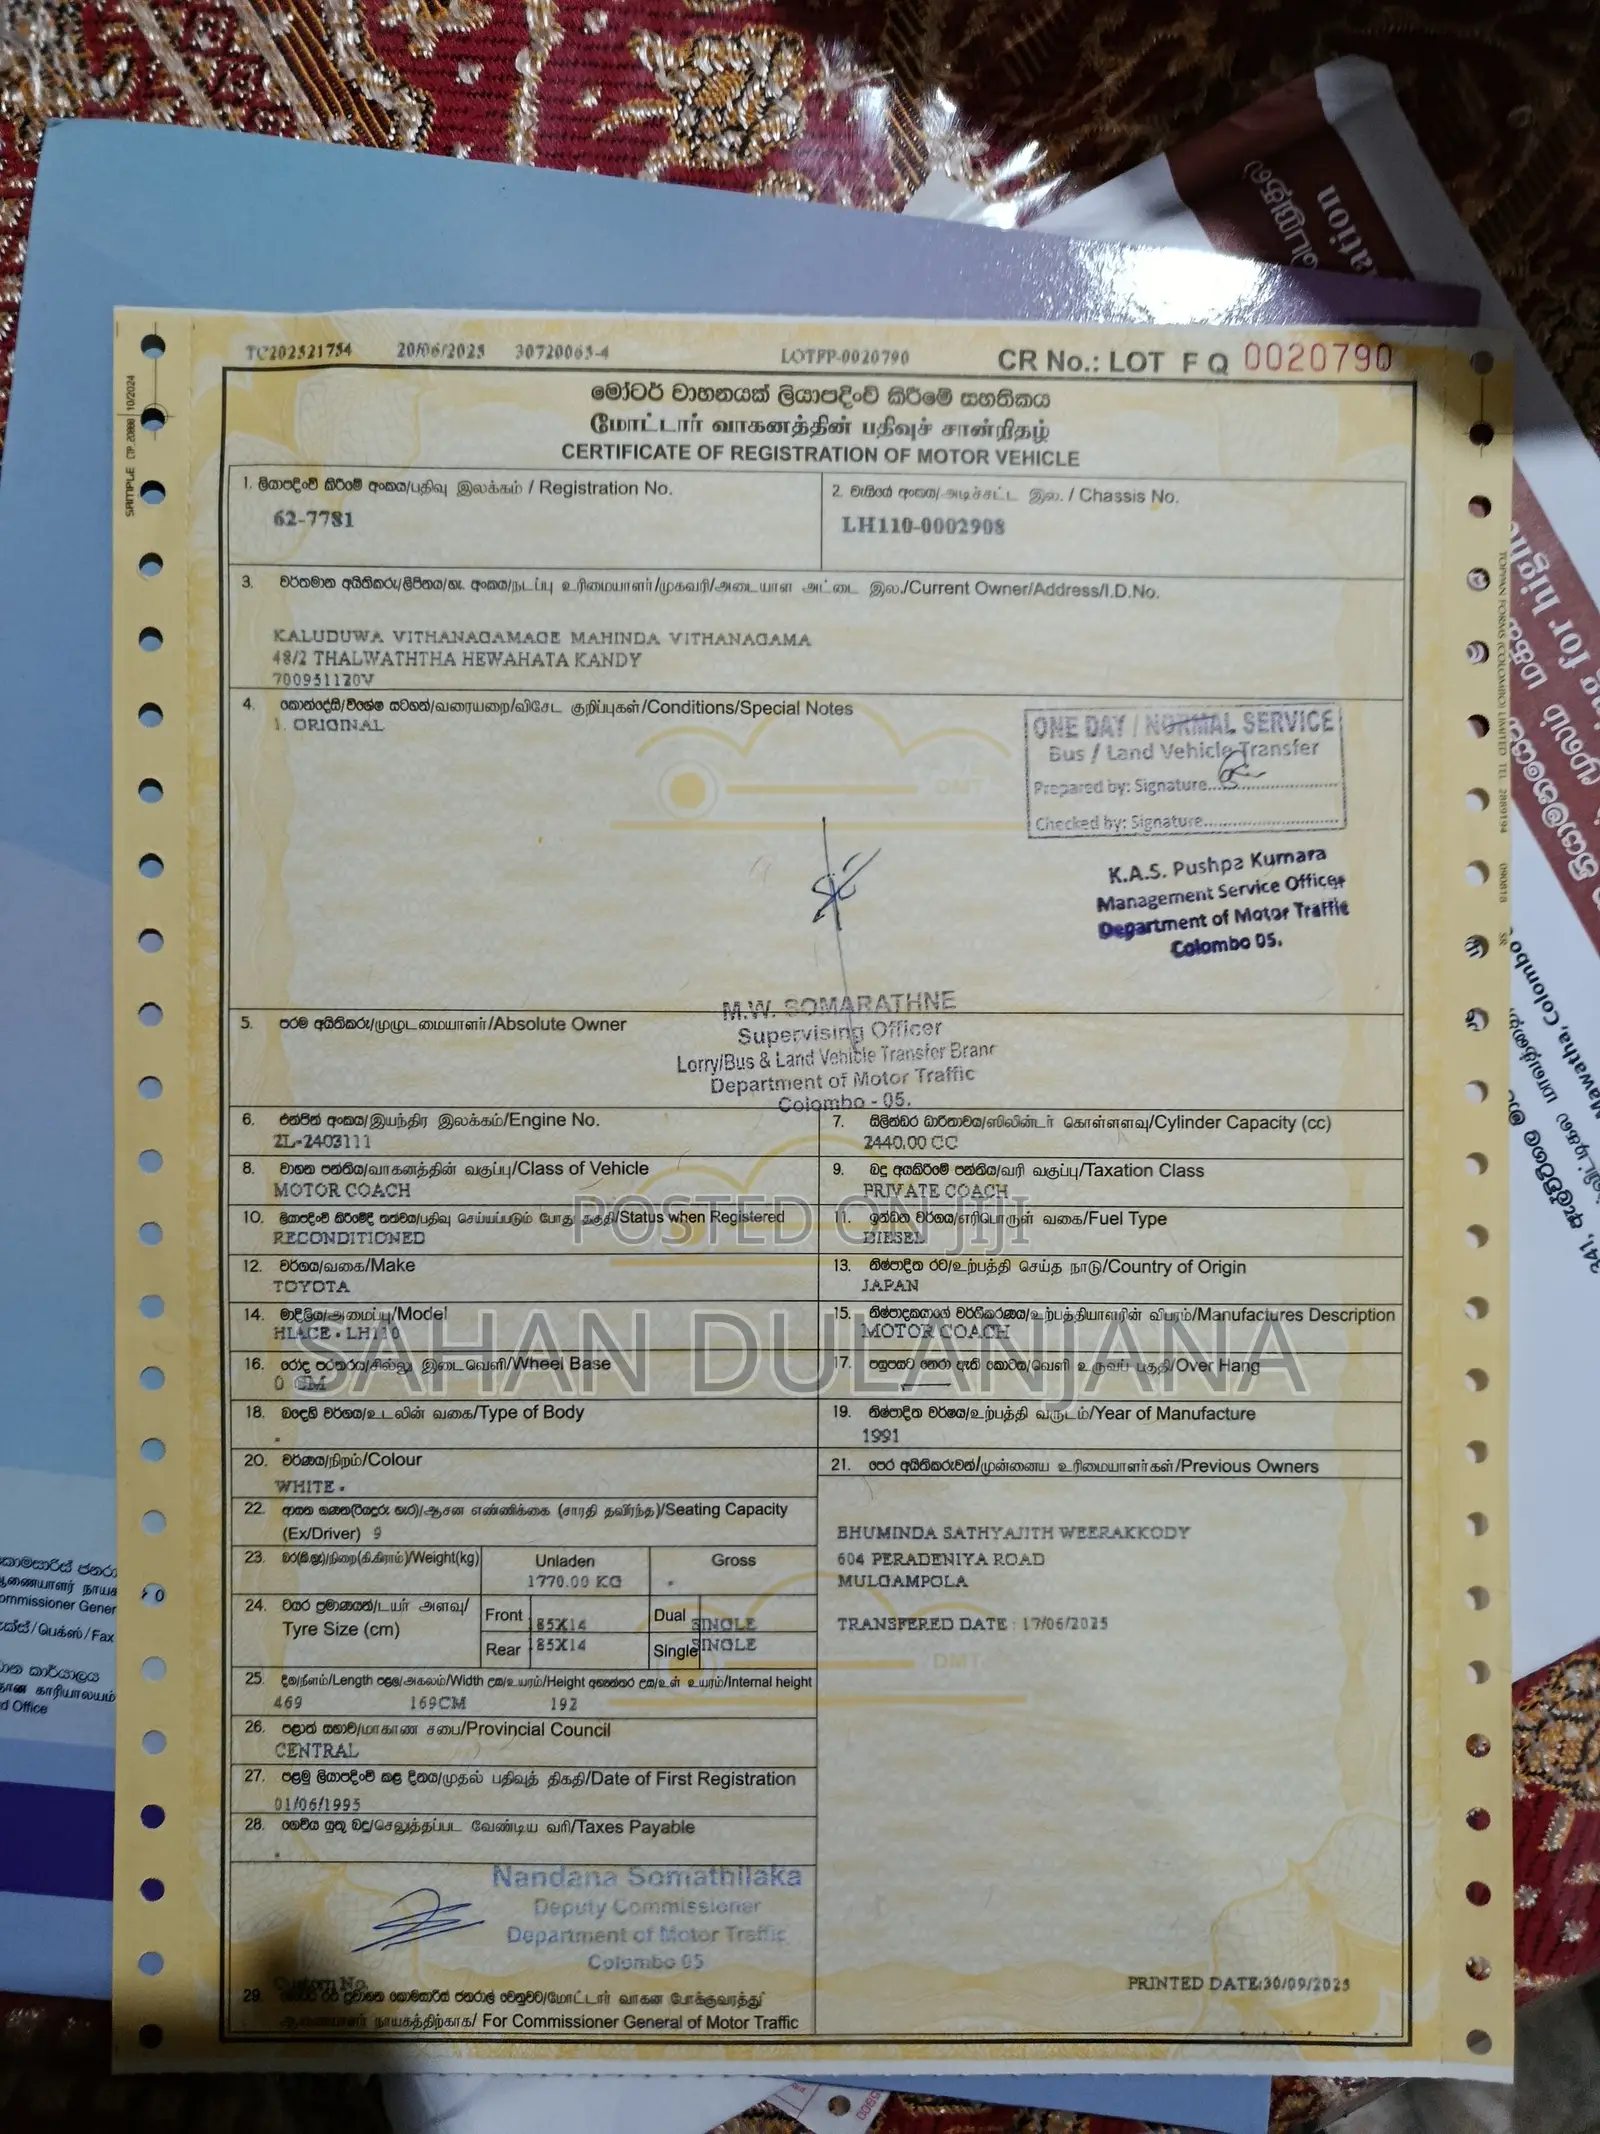 TC202521754 20/06/2025 30720065-4 LOTFP-0020790 CR No.: LOT F Q 0020790
මෝටර් වාහනයක් ලියාපදිංචි කිරීමේ සහතිකය
மோட்டார் வாகனத்தின் பதிவுச் சான்றிதழ்
CERTIFICATE OF REGISTRATION OF MOTOR VEHICLE
1. ලියාපදිංචි කිරීමේ අංකය/பதிவு இலக்கம் / Registration No.
62-7781
2. චැසියේ අංකය/அடிச்சட்ட இல. / Chassis No.
LH110-0002908
3. වර්තමාන අයිතිකරු/ලිපිනය/හැ. අංකය/நடப்பு உரிமையாளர்/முகவரி/அடையாள அட்டை இல./Current Owner/Address/I.D.No.
KALUDUWA VITHANAGAMAGE MAHINDA VITHANAGAMA
48/2 THALWATHTHA HEWAHATA KANDY
700951120V
4. කොන්දේසි/විශේෂ සටහන්/வரையறை/விசேட குறிப்புகள்/Conditions/Special Notes
1. ORIGINAL
ONE DAY / NORMAL SERVICE
Bus / Land Vehicle Transfer
Prepared by: Signature
Checked by: Signature
K.A.S. Pushpa Kumara
Management Service Officer
Department of Motor Traffic
Colombo 05.
5. පරම අයිතිකරු/முழுடமையாளர்/Absolute Owner
M.W. SOMARATHNE
Supervising Officer
Lorry/Bus & Land Vehicle Transfer Branc
Department of Motor Traffic
Colombo - 05.
6. එන්ජින් අංකය/இயந்திர இலக்கம்/Engine No.
2L-2403111
7. සිලින්ඩර ධාරිතාවය/ஸிலின்டர் கொள்ளளவு/Cylinder Capacity (cc)
2440.00 CC
8. වාහන පන්තිය/வாகனத்தின் வகுப்பு/Class of Vehicle
MOTOR COACH
9. බදු අයකිරීමේ පන්තිය/வரி வகுப்பு/Taxation Class
PRIVATE COACH
10. ලියාපදිංචි කිරීමේදී තත්වය/பதிவு செய்யப்படும் போது தகுதி/Status when Registered
RECONDITIONED
11. ඉන්ධන වර්ගය/எரிபொருள் வகை/Fuel Type
DIESEL
POSTED ON JIJI
12. වර්ගය/வகை/Make
TOYOTA
13. නිෂ්පාදිත රට/உற்பத்தி செய்த நாடு/Country of Origin
JAPAN
14. මාදිලිය/அமைப்பு/Model
HIACE - LH110
15. නිෂ්පාදකයාගේ වර්ගීකරණය/உற்பத்தியாளரின் விபரம்/Manufactures Description
MOTOR COACH
SAHAN DULANJANA
16. රෝද පරතරය/சில்லு இடைவெளி/Wheel Base
0 CM
17. පසුපසට නෙරා ඇති කොටස/வெளி உருவப் பகுதி/Over Hang
18. බඳෙහි වර්ගය/உடலின் வகை/Type of Body
19. නිෂ්පාදිත වර්ෂය/உற்பத்தி வருடம்/Year of Manufacture
1991
20. වර්ණය/நிறம்/Colour
WHITE -
21. පෙර අයිතිකරුවන්/முன்னைய உரிமையாளர்கள்/Previous Owners
BHUMINDA SATHYAJITH WEERAKKODY
604 PERADENIYA ROAD
MULGAMPOLA
TRANSFERED DATE : 17/06/2025
22. ஆசன எண்ணிக்கை (சாரதி தவிர்ந்த)/Seating Capacity
(Ex/Driver) 9
23. බර(කි.ග්‍රෑ)/நிறை(கி.கிராம்)/Weight(kg) Unladen Gross
1770.00 KG -
24. ටයර ප්‍රමාණයන්/டயர் அளவு/
Tyre Size (cm)
Front 185X14 Dual SINGLE
Rear 185X14 Single SINGLE
25. දිග/நீளம்/Length පළල/அகலம்/Width උස/உயரம்/Height අභ්‍යන්තර උස/உள் உயரம்/Internal height
469 169CM 192
26. පළාත් සභාව/மாகாண சபை/Provincial Council
CENTRAL
27. පළමු ලියාපදිංචි කළ දිනය/முதல் பதிவுத் திகதி/Date of First Registration
01/06/1995
28. ගෙවිය යුතු බදු/செலுத்தப்பட வேண்டிய வரி/Taxes Payable
Nandana Somathilaka
Deputy Commissioner
Department of Motor Traffic
Colombo 05
Custom No.
29. මෝටර් රථ ප්‍රවාහන කොමසාරිස් ජනරාල් වෙනුවට/மோட்டார் வாகன போக்குவரத்து
ஆணையாளர் நாயகத்திற்காக/ For Commissioner General of Motor Traffic
PRINTED DATE:30/09/2025
SRIMPLE CTP. 20888 10/2024
TOPPAN FORMS (COLOMBO) LIMITED TEL. 2889194 090818 SR
කොමසාරිස් ජනරා
ஆணையாளர் நாயக
ommissioner Gener
ෆැක්ස්/பெக்ஸ்/Fax
d Office
ation
Mawatha, Colombo